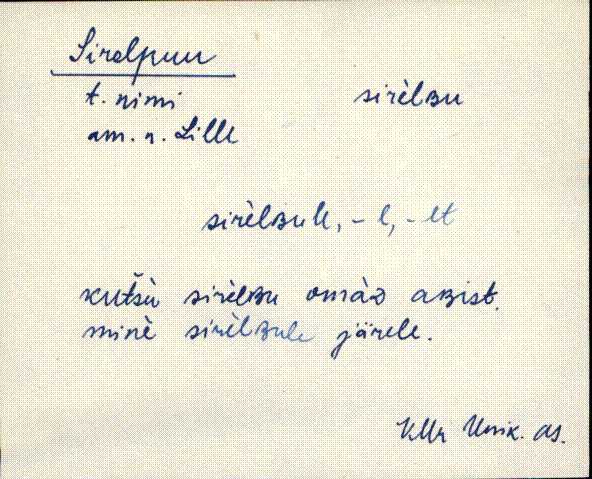 Sirelpuu
t. nimi sirèlʙu
am. n. Lille
sirèlʙule, -l, -lt
kutšù sirèlʙu omàᴅ aʙist.
minè sirèlʙule järele.
KMr as.